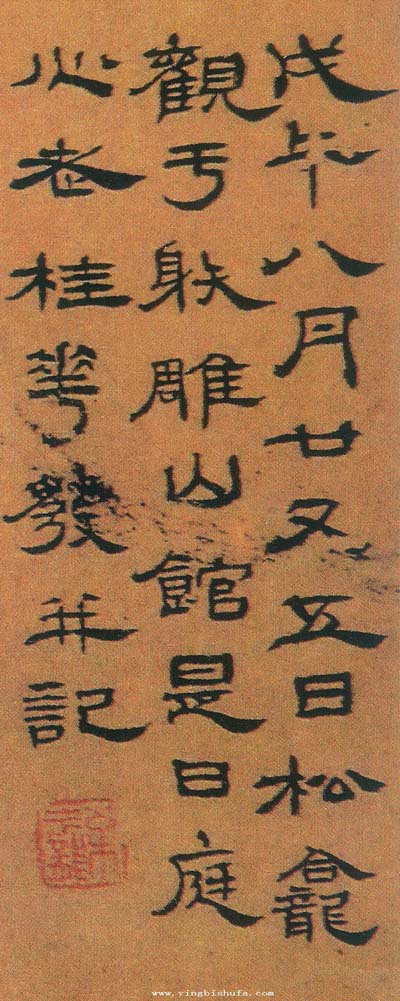 戊午八月廿又五日松龕
觀于䠶雕山館是日庭
心老桂華發并記
www.yingbishufa.com